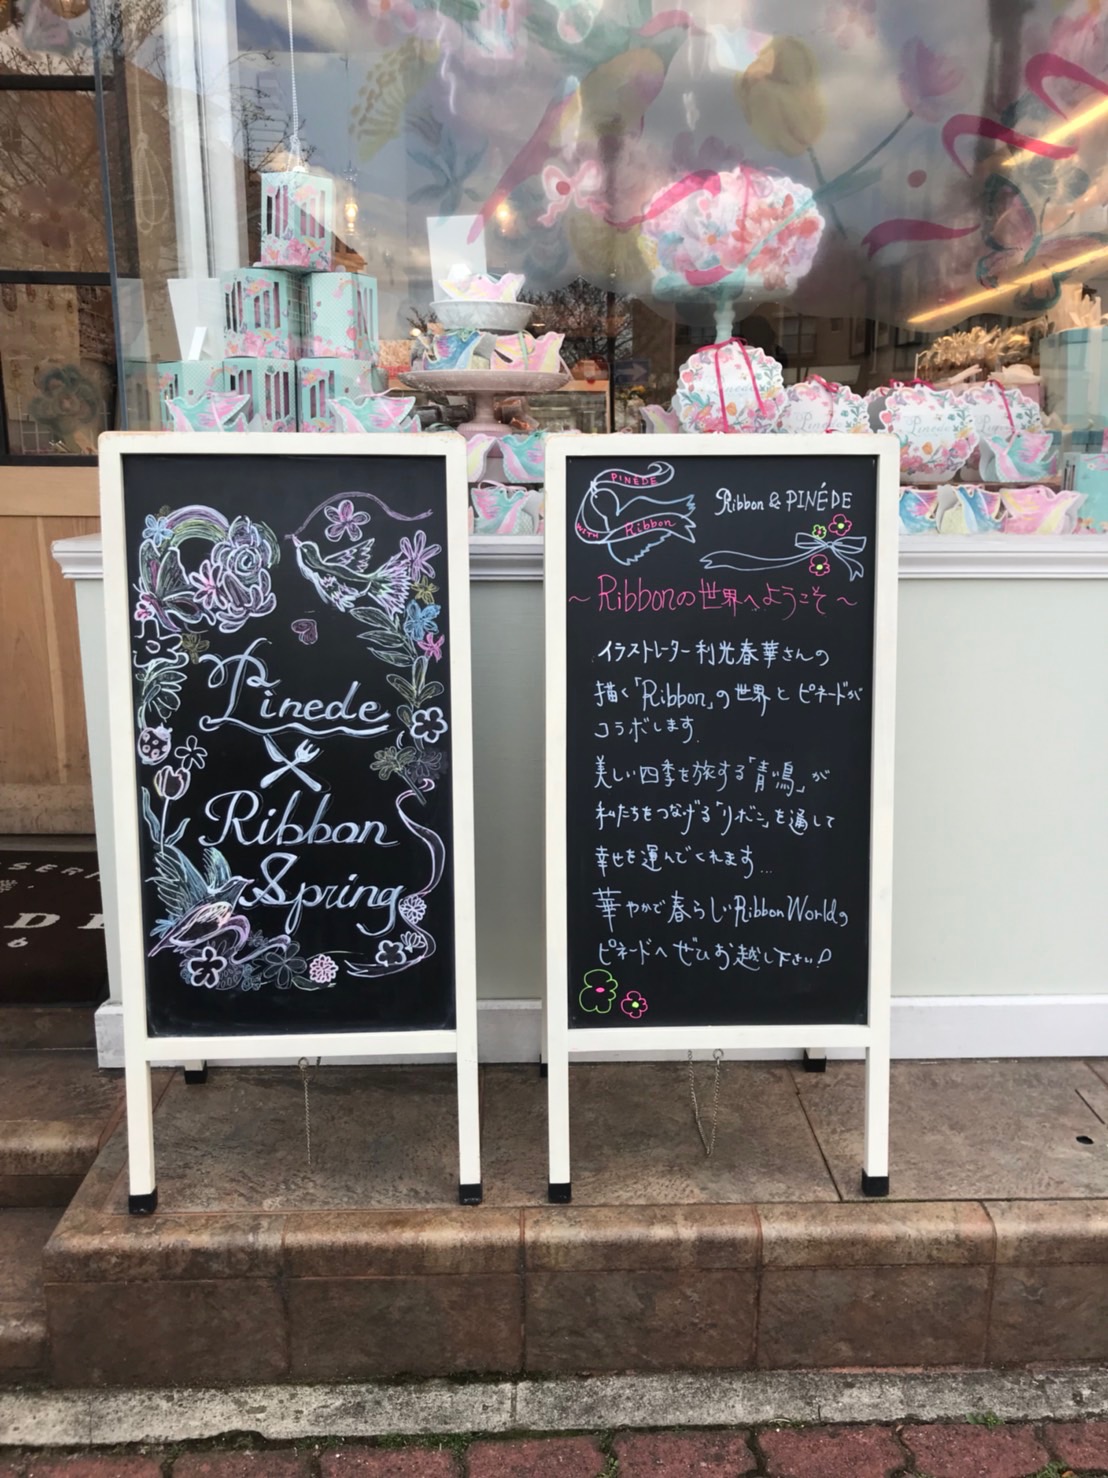 Pinede
Ribbon
Spring
PINEDE
WITH
Ribbon
Ribbon & PINÉDE
〜Ribbonの世界へようこそ〜
イラストレーター利光春華さんの
描く「Ribbon」の世界とピネードが
コラボします.
美しい四季を旅する「青い鳥」が
私たちをつなげる「リボン」を通して
幸せを運んでくれます…
華やかで春らしいRibbon Worldの
ピネードへぜひお越し下さい!
Pinede
Pinede
Pinede